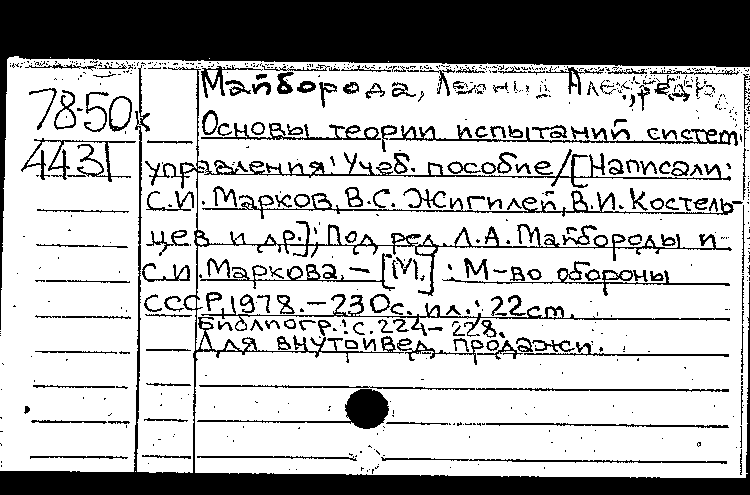 Майборода, Леонид Алек , ред.
78-50к
Основы теории испытаний систем
4431
управления: Учеб. пособие/[Написали:
С.И. Марков, В.С. Жигилей, В.И. Костель-
цев и др.]; Под ред. Л.А. Майбороды и
С.И. Маркова. – [М.] : М-во обороны
СССР, 1978. – 230с., ил.; 22см.
Библиогр.: с. 224-228.
Для внутривед. продажи.